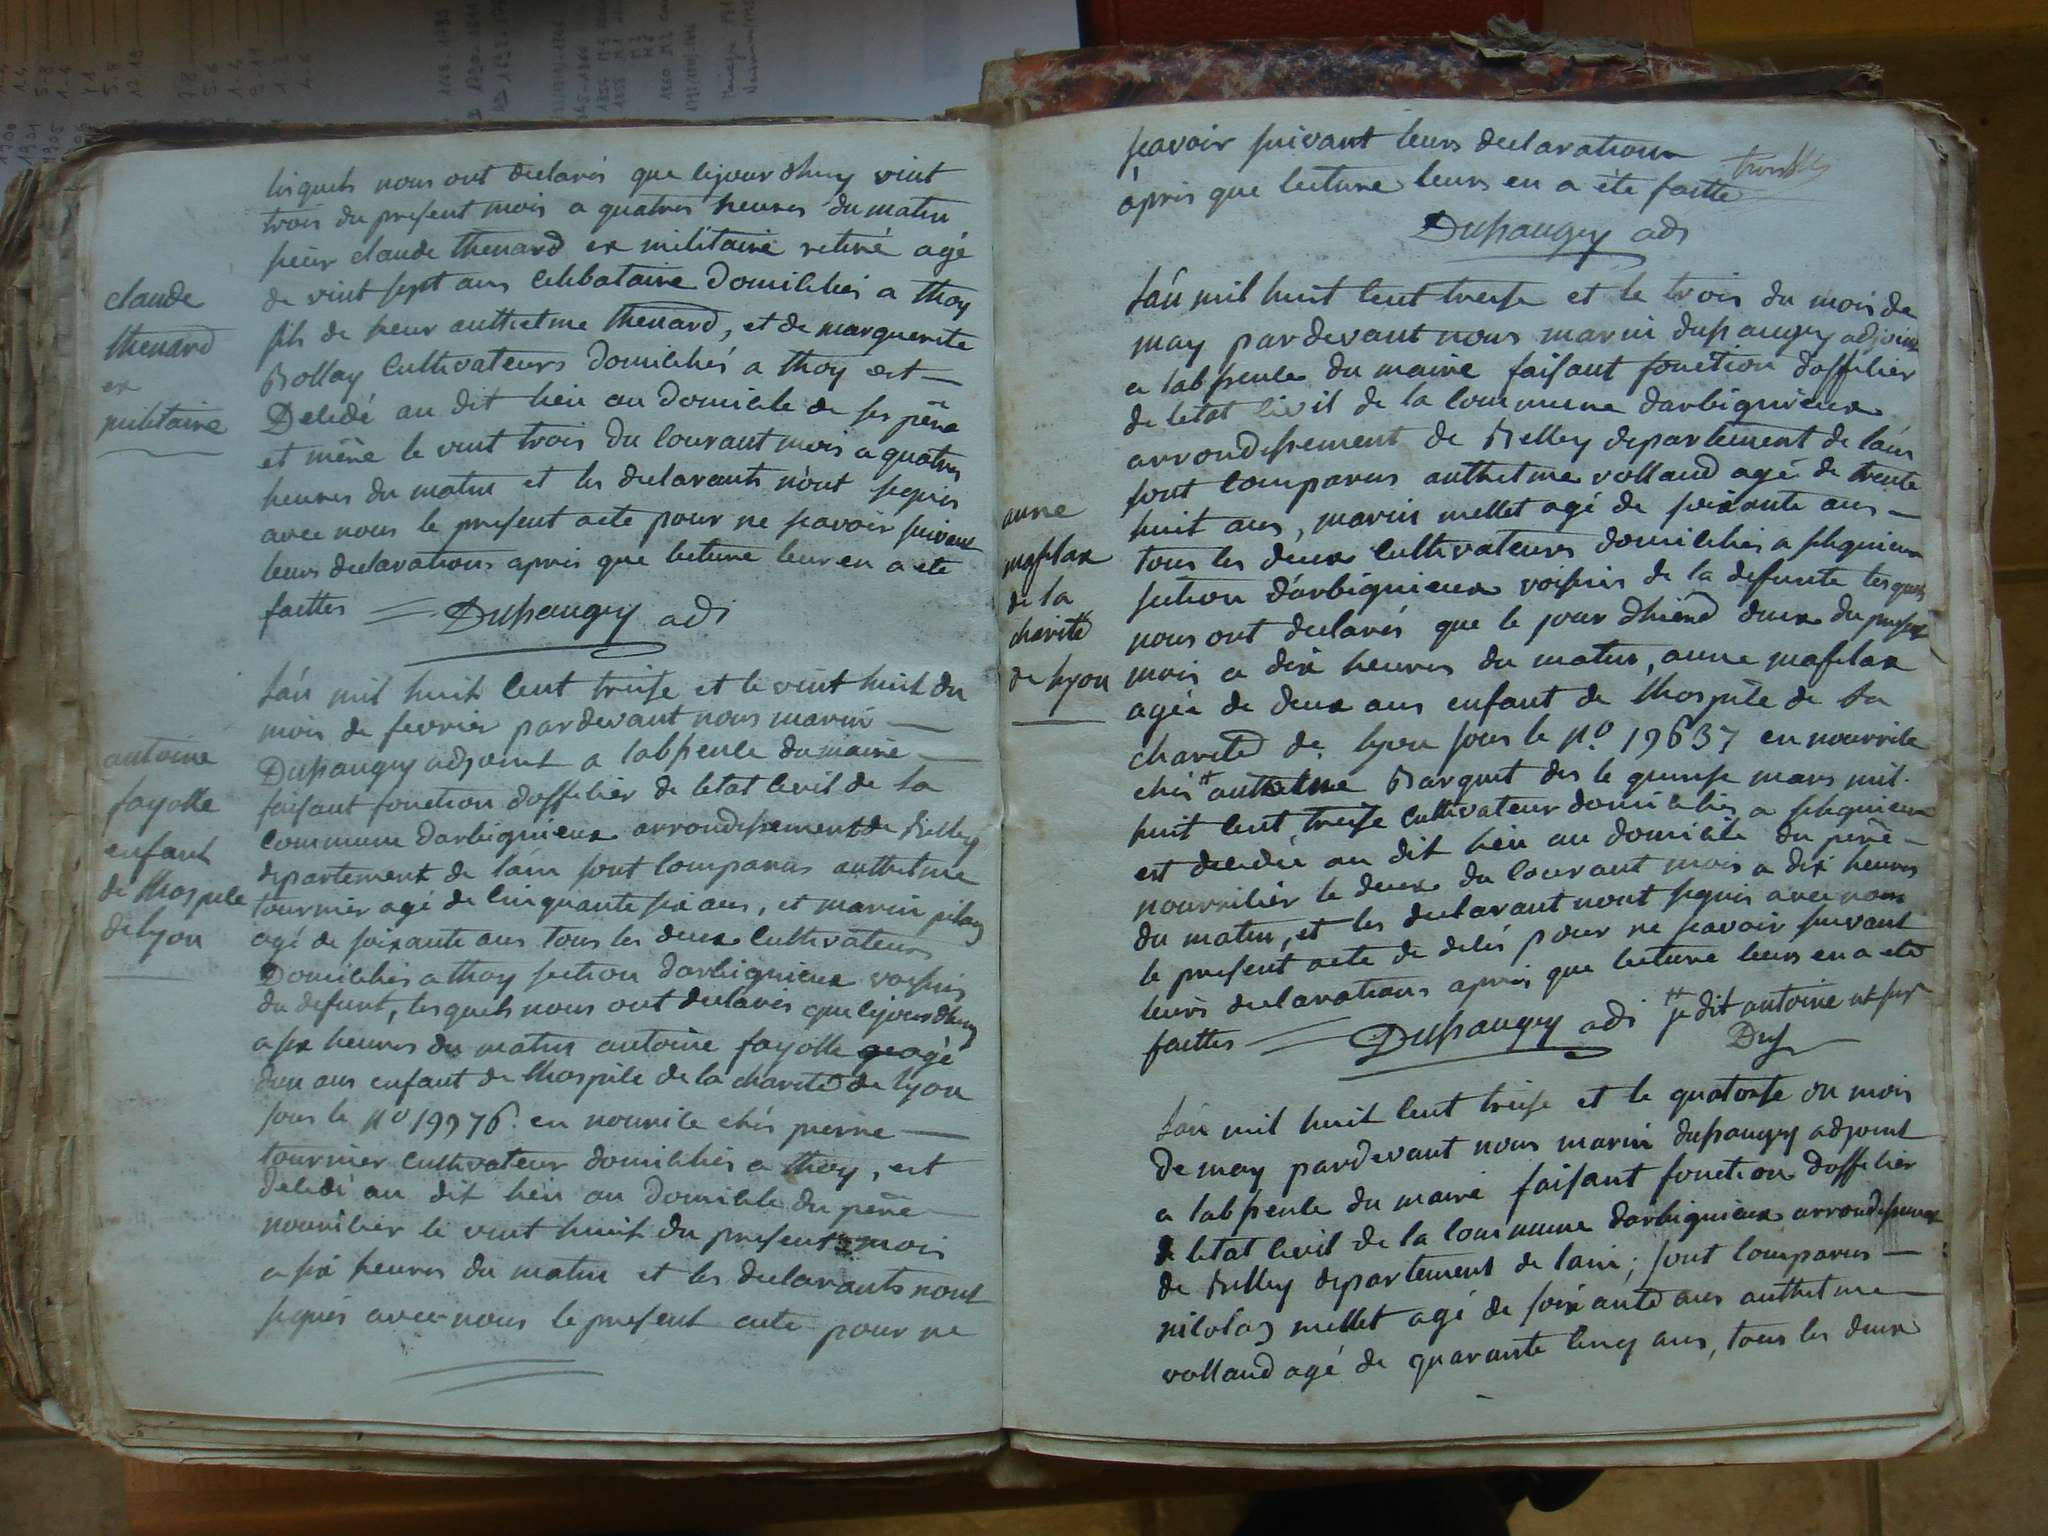 claude
thenard
ex
militaire
antoine
fayolle
enfant
de lhospile
de lyon
lesquels nous ont declarés que lejourdhuy vint
trois du present mois a quatres heures du matin
sieur claude thenard ex militaire retiré agé
de vint sept ans celibataire Domicilies a thoy
fils de sieur anthelme thenard, et de marguerite
Bollay Cultivateurs Domiciliés a thoy est
Decedé au dit lieu au Domicile de ses père
et mère le vint trois du Courant mois a quatres
heures du matin et les declarants nont signés
avec nous le present acte pour ne scavoir suivant
leurs declarations apres que lecture leur en a ete
faittes Dusaugey adj
Lán mil huit Cent treise et le vint huit du
mois de fevrier pardevant nous marin
Dusaugey adjoint a labsence du maire
faisant fonction dofficier de letat Civil de la
Commune darbignieux arrondissement de Belley
departement de lain sont Comparus anthelme
tournier agé de Cinquante six ans, et marin
agé de soixante ans tous les deux Cultivateurs
Domicilies a thoy section darbignieux voisins
du defunt, lesquels nous ont declarés que lejourdhuy
a six heures du matin antoine fayolle agé
deux ans enfant de lhospile de la charité de lyon
sous le No 19976 en nourice chés pierre
tournier Cultivateur domicilies a thoy, est
decedé au dit lieu au Domicile du père
nouricier le vint huit du present mois
a six heures du matin et les declarants nont
signés avec nous le present acte pour ne
scavoir suivant leurs declarations
après que lecture leurs en a été faitte
Dusaugey adj
anne
masslax
de la
charité
de lyon
Lán mil huit Cent treise et le trois du mois de
may pardevant nous marin dusaugey adjoint
a labsence du maire faisant fonction dofficier
de letat Civil de la Commune darbignieux
arrondissement de Belley departement de láin
sont Comparus anthelme volland agé de trente
huit ans, marin mellet agé de soixante ans
tous les deux Cultivateurs domicilies a slignieux
section dárbignieux voisins de la defunte lesquels
nous ont declarés que le jour dhiérd deux du present
mois a dix heures du matin, anne masslax
agée de deux ans enfant de lhospile de la
charité de lyon sous le No 19637 en nourrile
chés anthelme Barquet des le quinse mars mil
huit Cent treise Cultivateur domicilies a slignieux
est decedée au dit lieu au domicile du père
nourricier le deux du Courant mois a dix heures
du matin, et les declarant nont signés avec nous
le present acte de décés pour ne scavoir suivant
leurs declarations apres que lecture leurs en a eté
faittes Dusaugey adj je dit antoine
Dus
Lán mil huit Cent treise et le quatorse du mois
de may pardevant nous marin dusaugey adjoint
a labsence du maire faisant fonction dofficier
de letat Civil de la Commune darbignieux arrondissement
de Belley departement de lain; sont Comparus
nicolas mellet agé de soixante ans anthelme
volland agé de quarante Cinq ans, tous les deux